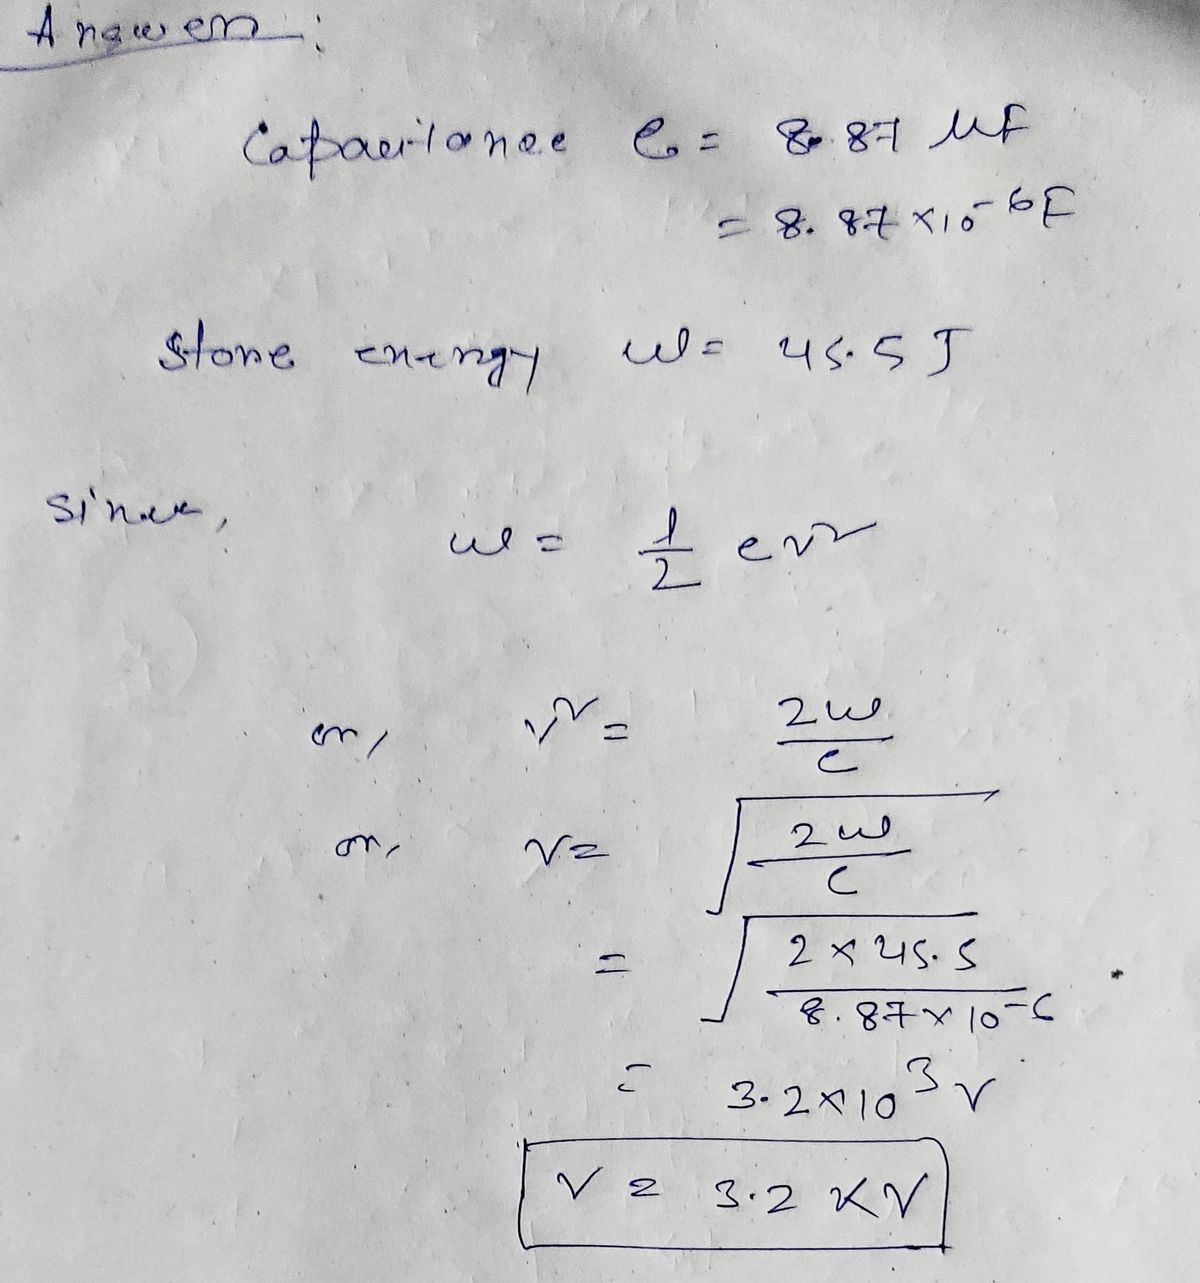 Answer :
Capacitance C = 8.87 μF
= 8.87 × 10⁻⁶ F
Store energy W = 45.5 J
Since, W = 1/2 CV²
or, V² = 2W/C
or, V = √(2W/C)
= √(2 × 45.5 / 8.87 × 10⁻⁶)
= 3.2 × 10³ V
V = 3.2 KV